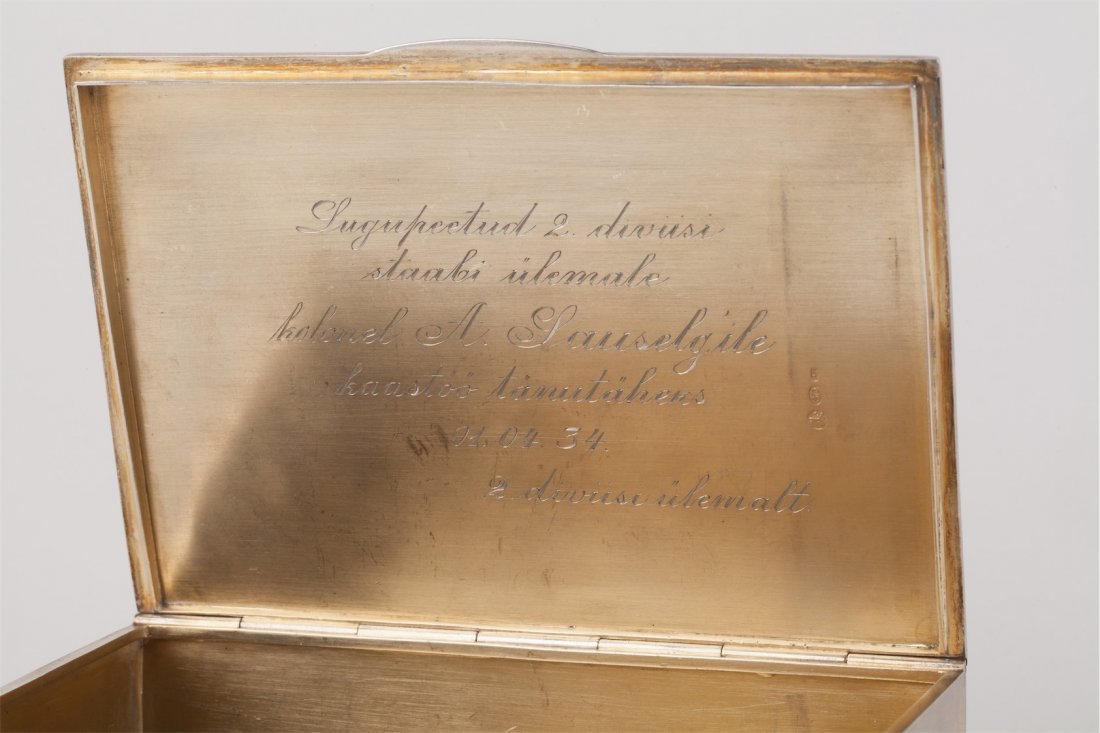 Lugupeetud 2. diviisi
staabi ülemale
kolonel A. Lauselg'ile
kaastöö tänutäheks
01.04.34.
2. diviisi ülemalt.